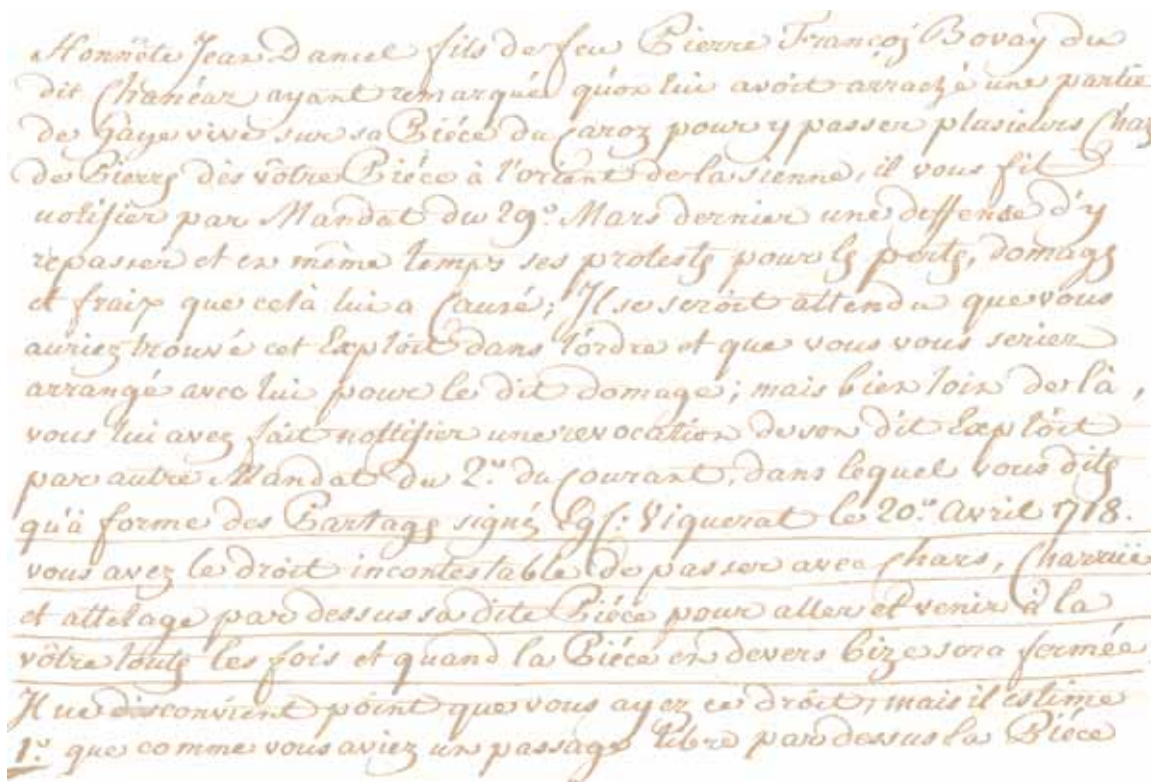 Honnête Jean Daniel fils de feu Pierre François Bovay du
dit Chanéaz ayant remarqué qu'on lui avoit arraché une partie
de haye vive sur sa Piéce du Caroz pour y passer plusieurs Chaz
de Pierres dès vôtre Piéce à l'orient de la sienne, il vous fit
notifier par Mandat du 29.e Mars dernier une deffense d'y
repasser et en même temps ses protestes pour les perte, domages
et fraix que celà lui a Causé; Il se seroit attendu que vous
auriez trouvé cet Exploit dans l'ordre et que vous vous seriez
arrangé avec lui pour le dit domage; mais bien loin de là,
vous lui avez fait nottifier une revocation de son dit Exploit
par autre Mandat du 2.e du Courant, dans lequel vous dites
qu'à forme des Partages signés Viquerat le 20.e Avril 1718.
vous avez le droit incontestable de passer avec Chars, Charrüe
et attelage par dessus sa dite Piéce pour aller et venir à la
vôtre toutes les fois et quand la Piéce en devers bize sera fermée.
Il ne disconvient point que vous ayez ce droit, mais il estime
1.o que comme vous aviez un passage libre par dessus la Piéce